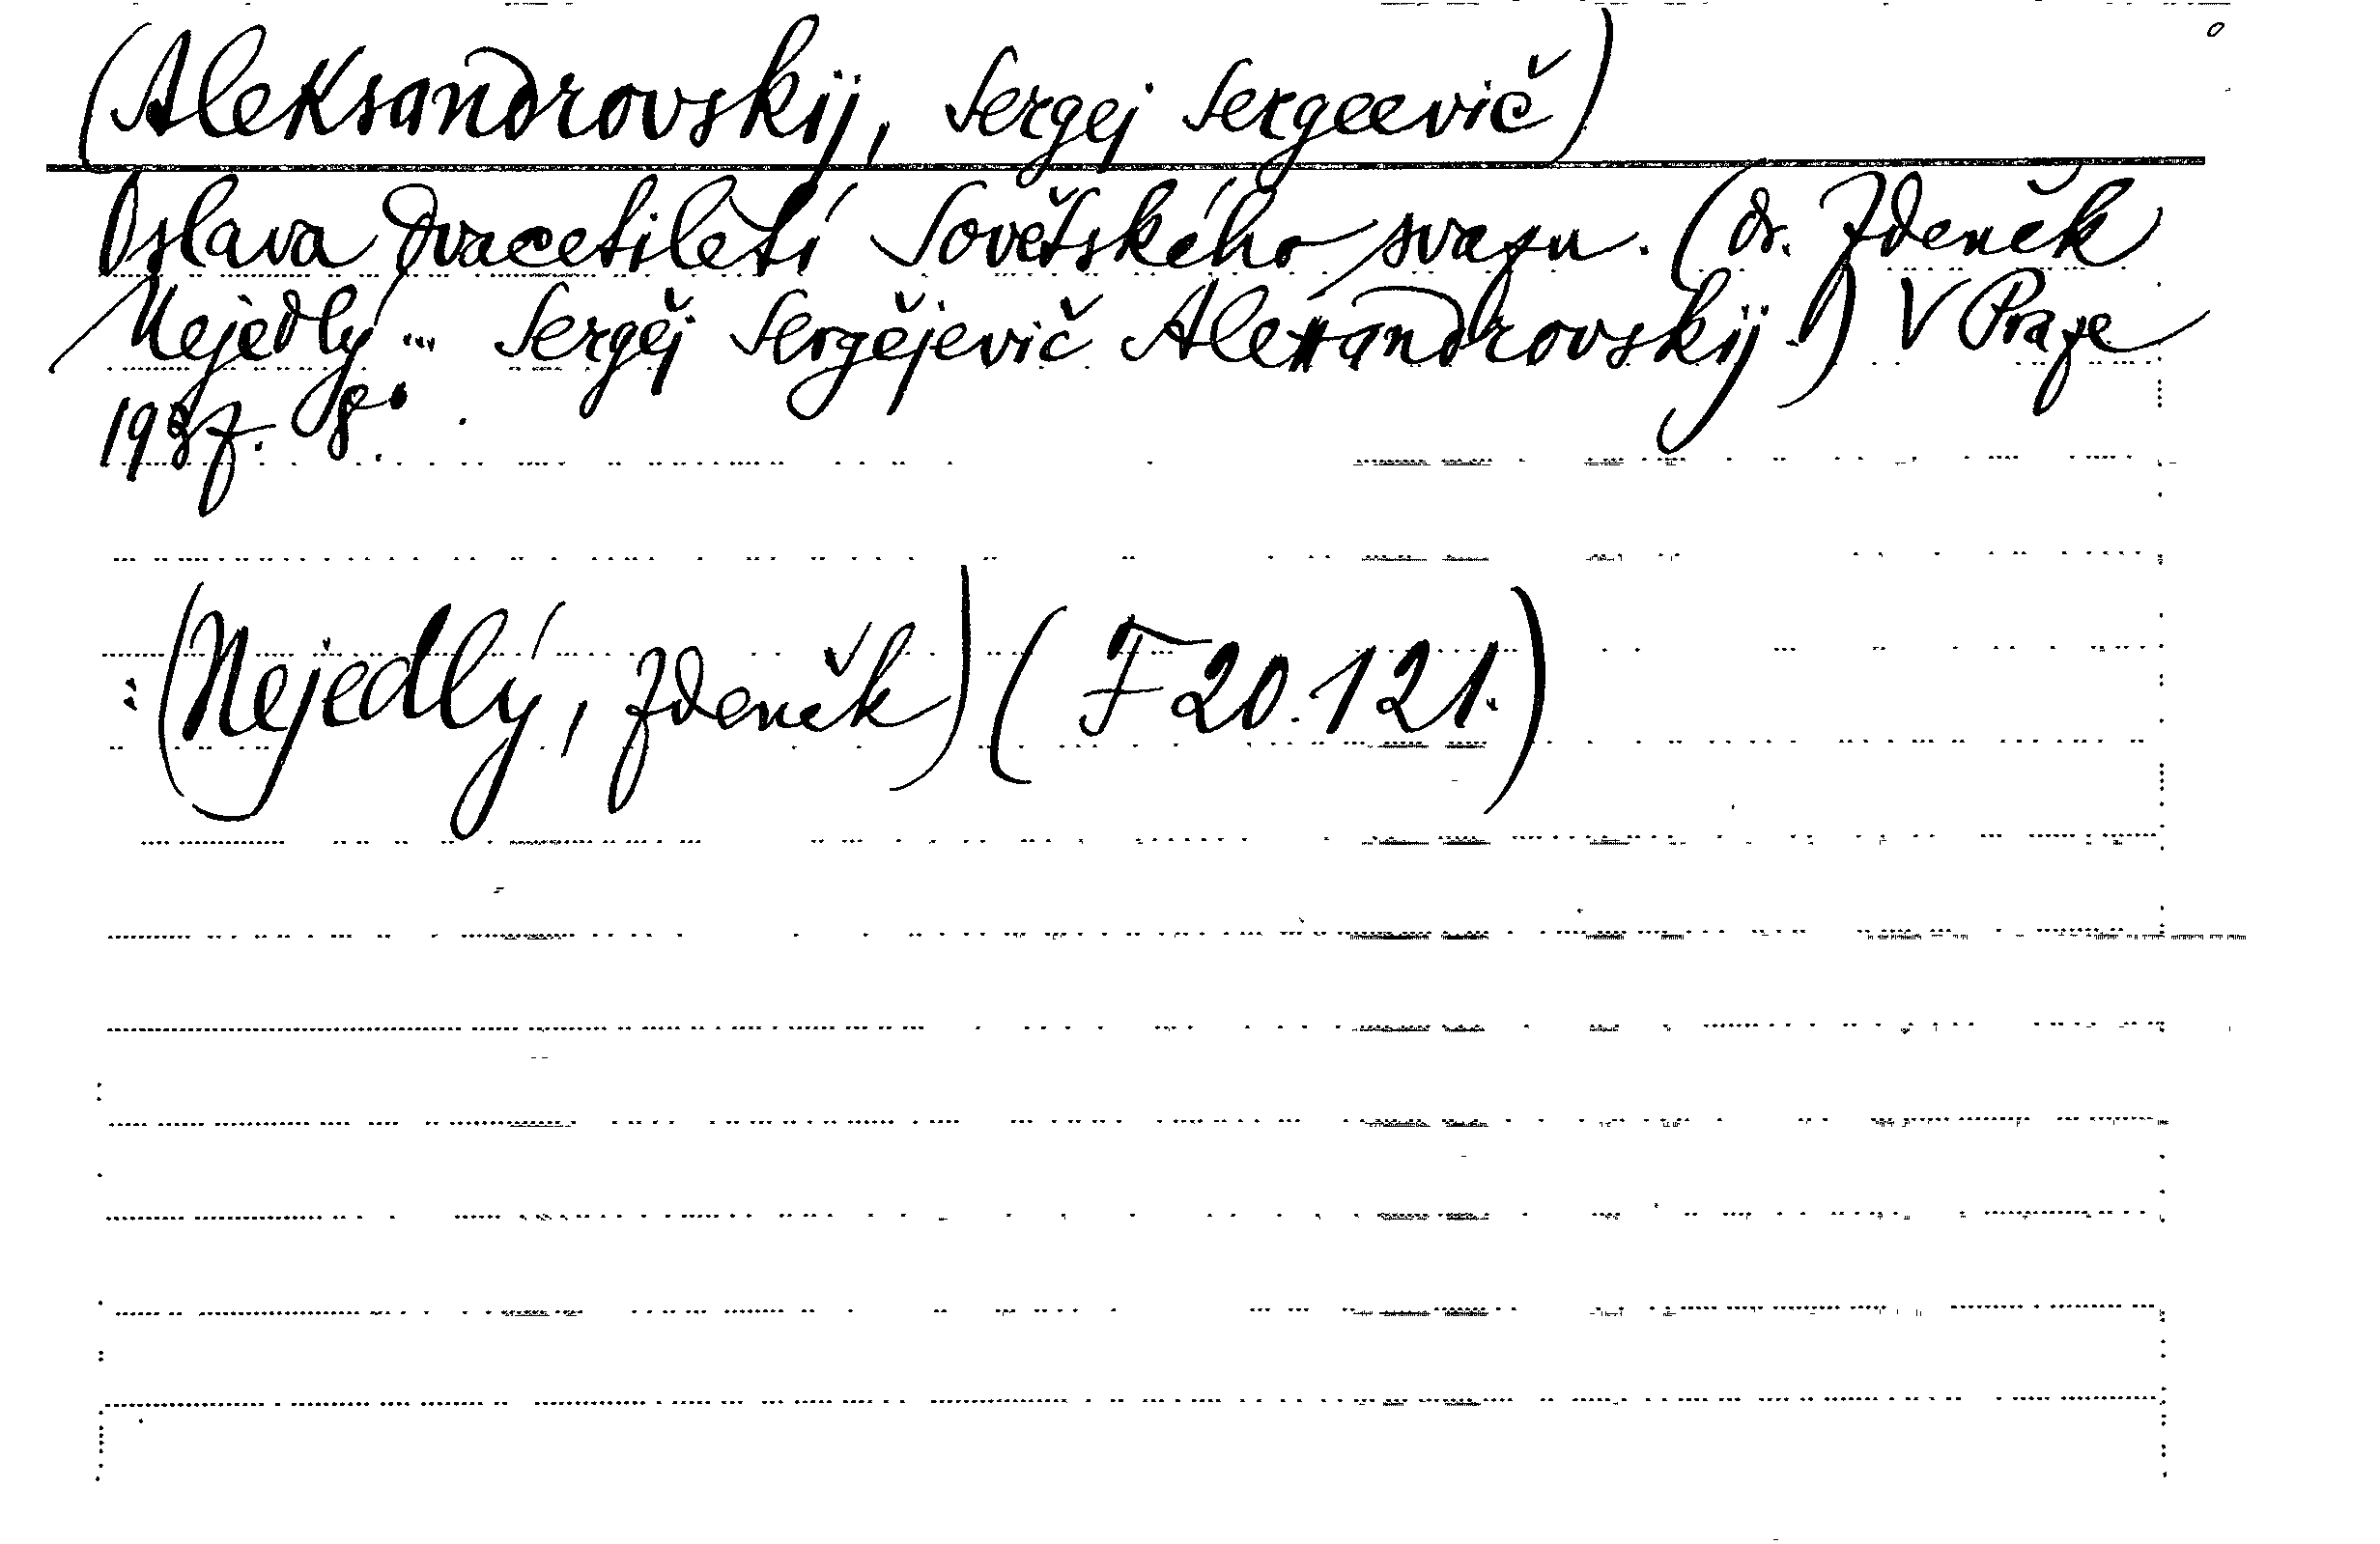 (Aleksandrovskij, Sergej Sergeevič)
Oslava dvacetiletí Sovětského svazu. (dr. Zdeněk
Nejedlý ... Sergěj Sergějevič Alexandrovskij.) V Praze
1937. 8°.
: (Nejedlý, Zdeněk) (F 20.121.)